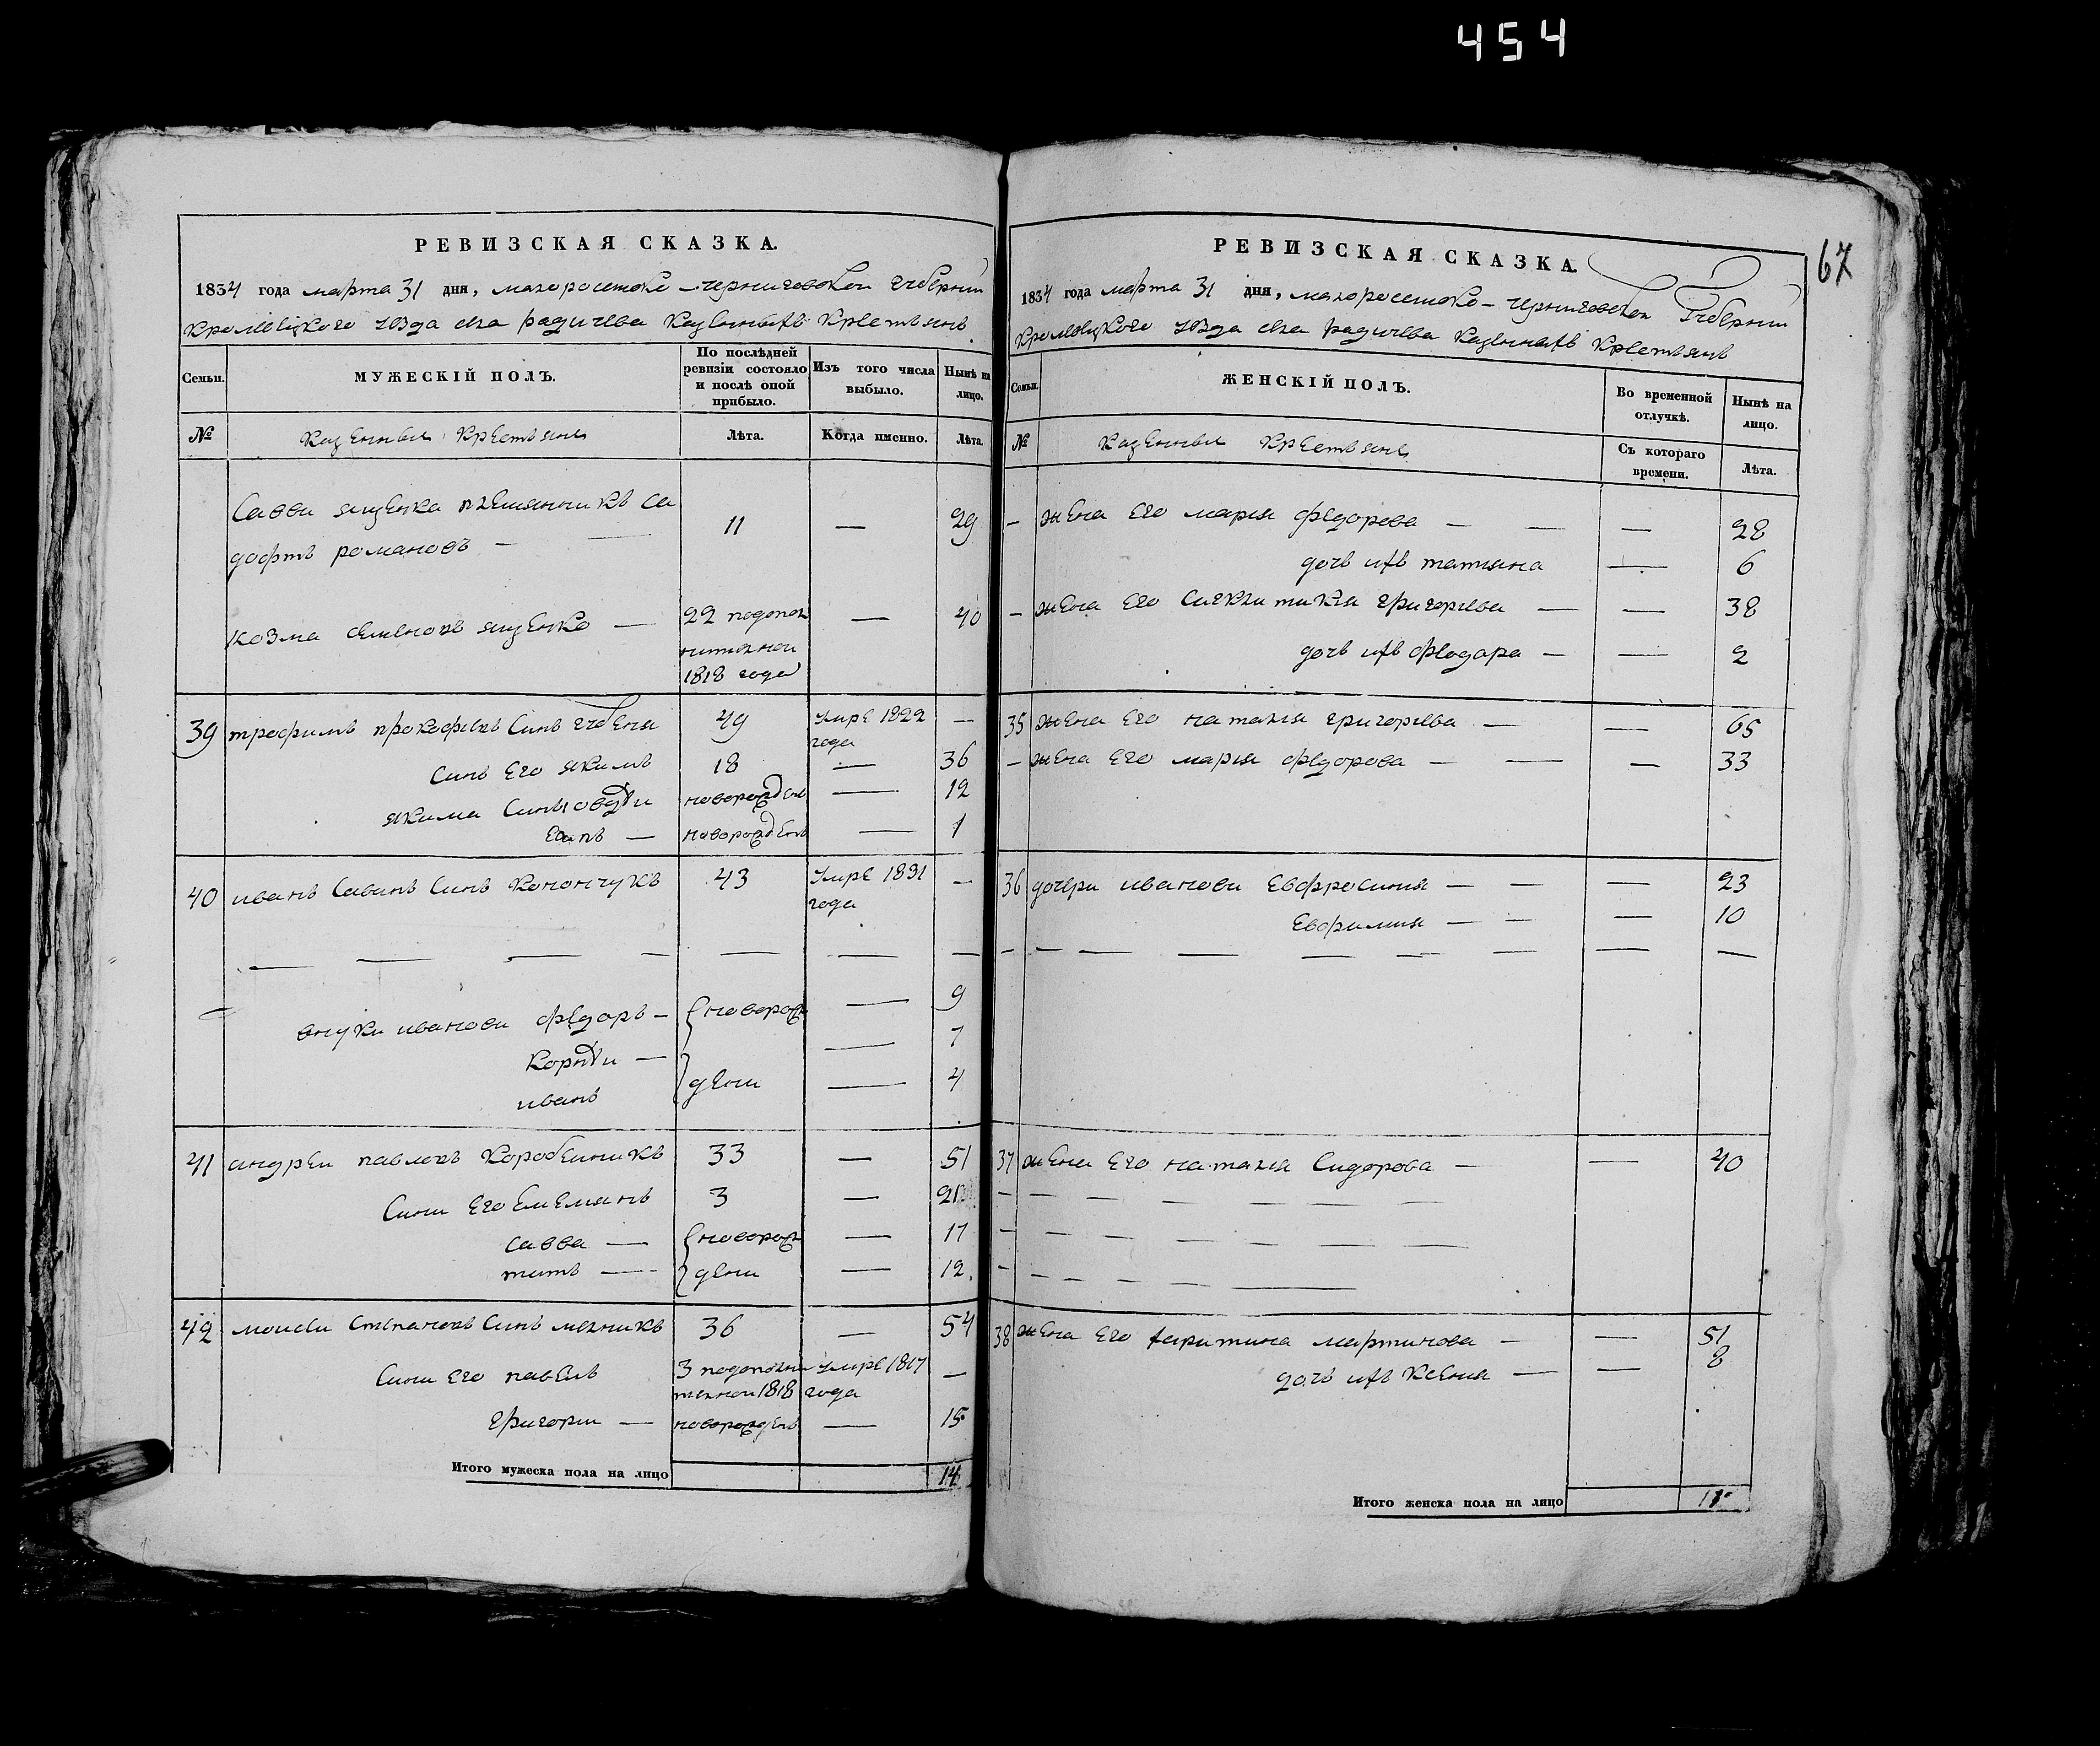 454
67
РЕВИЗСКАЯ СКАЗКА.
1834 года марта 31 дня, малоросейско-черниговской губернии
Кролевецкого уезда села радичева Казенныхъ Крестьянъ
Семьи.
МУЖЕСКІЙ ПОЛЪ.
По послѣдней ревизіи состояло и послѣ оной прибыло.
Изъ того числа выбыло.
Нынѣ на лицо.
№
Казенныи Крестьяне
Лѣта.
Когда именно.
Лѣта.
Савви ященка племянникъ са
11 — 29
дофтъ романовъ —
козма семеновъ ященко — 22 подопол — 40
нителной
1818 года
39 трофимъ прокофиевъ Синъ губеня 49 Умре 1822 —
года
синъ его якимъ 18 — 36
якима Синъ овдѣи новорожден — 12
есипъ — новорожденъ — 1
40 иванъ Савинъ Синъ Конончукъ 43 Умре 1831 —
года
внуки иванови федоръ — новорож — 9
корнѣи — — 7
иванъ дени — 4
41 андреи павловъ Коробеиникъ 33 — 51
Сини его емелянъ 3 — 21
савва — новорож — 17
титъ — дени — 12
42 моисеи Степановъ Синъ мелникъ 36 — 54
Сини его павелъ 3 подополни Умре 1817 —
телнои 1818 года
григории — новорожденъ — 15
Итого мужеска пола на лицо 14
РЕВИЗСКАЯ СКАЗКА.
1834 года марта 31 дня, малоросейско-черниговской Губернии
Кролевецкого уезда села радичева Казенныхъ Крестьянъ
Семьи.
ЖЕНСКІЙ ПОЛЪ.
Во временной отлучкѣ.
Нынѣ на лицо.
№
Казенныи Крестьяне
Съ котораго времени.
Лѣта.
— жена его мария федорова — — — 28
дочь ихъ татияна — 6
— жена его Синклитикия григориева — — 38
дочь ихъ феодора — — 2
35 жена его наталия григориева — — 65
— жена его мария федорова — — — 33
36 дочери иванови евфросиния — — — 23
евфимия — — — 10
37 жена его наталия Сидорова — — 40
38 жена его харитина мартинова — — 51
дочъ ихъ ксения — — 8
Итого женска пола на лицо 11